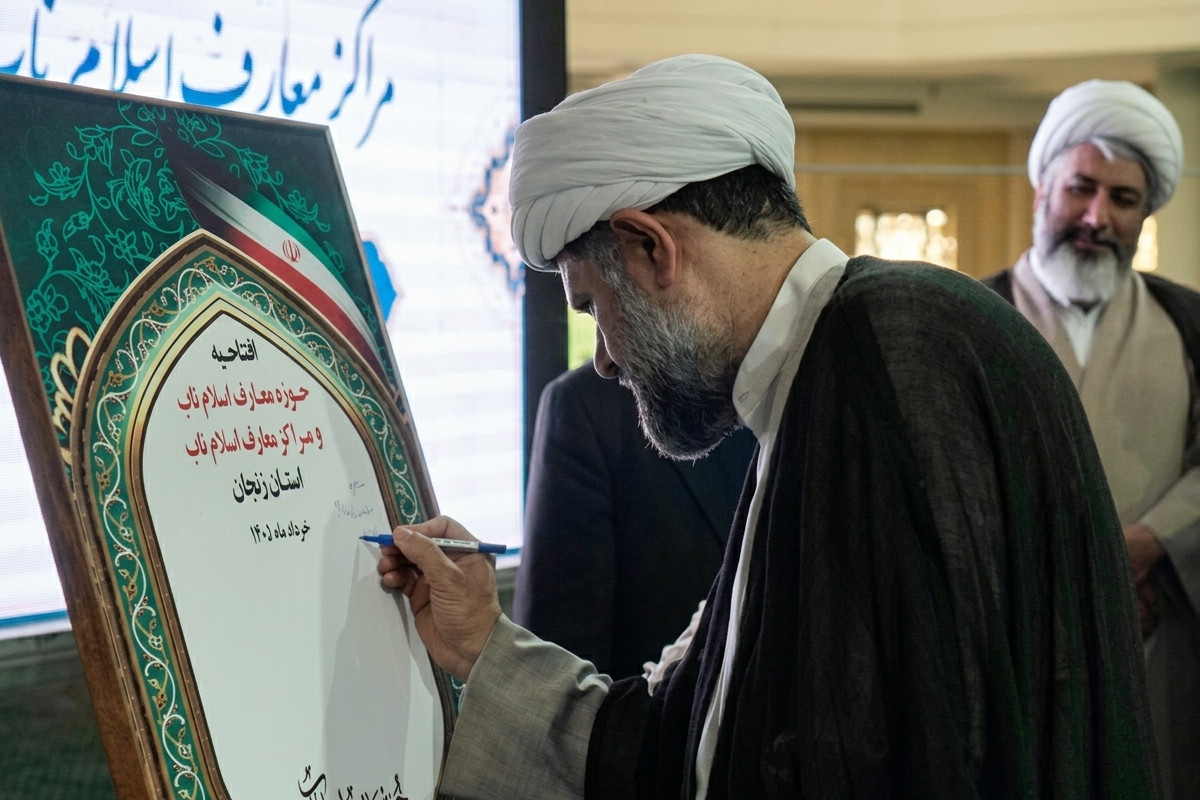 مراکز معارف اسلام ناب
افتتاحیه
حوزه معارف اسلام ناب
و مراکز معارف اسلام ناب
استان زنجان
خرداد ماه ۱۴۰۵